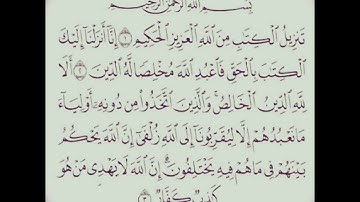 بِسْمِ اللَّهِ الرَّحْمَٰنِ الرَّحِيمِ
تَنزِيلُ الْكِتَٰبِ مِنَ اللَّهِ الْعَزِيزِ الْحَكِيمِ ۝١ إِنَّا أَنزَلْنَا إِلَيْكَ
الْكِتَٰبَ بِالْحَقِّ فَاعْبُدِ اللَّهَ مُخْلِصًا لَّهُ الدِّينَ ۝٢ أَلَا
لِلَّهِ الدِّينُ الْخَالِصُ ۚ وَالَّذِينَ اتَّخَذُوا مِن دُونِهِ أَوْلِيَاءَ
مَا نَعْبُدُهُمْ إِلَّا لِيُقَرِّبُونَا إِلَى اللَّهِ زُلْفَىٰ إِنَّ اللَّهَ يَحْكُمُ
بَيْنَهُمْ فِي مَا هُمْ فِيهِ يَخْتَلِفُونَ ۗ إِنَّ اللَّهَ لَا يَهْدِي مَنْ هُوَ
كَٰذِبٌ كَفَّارٌ ۝٣